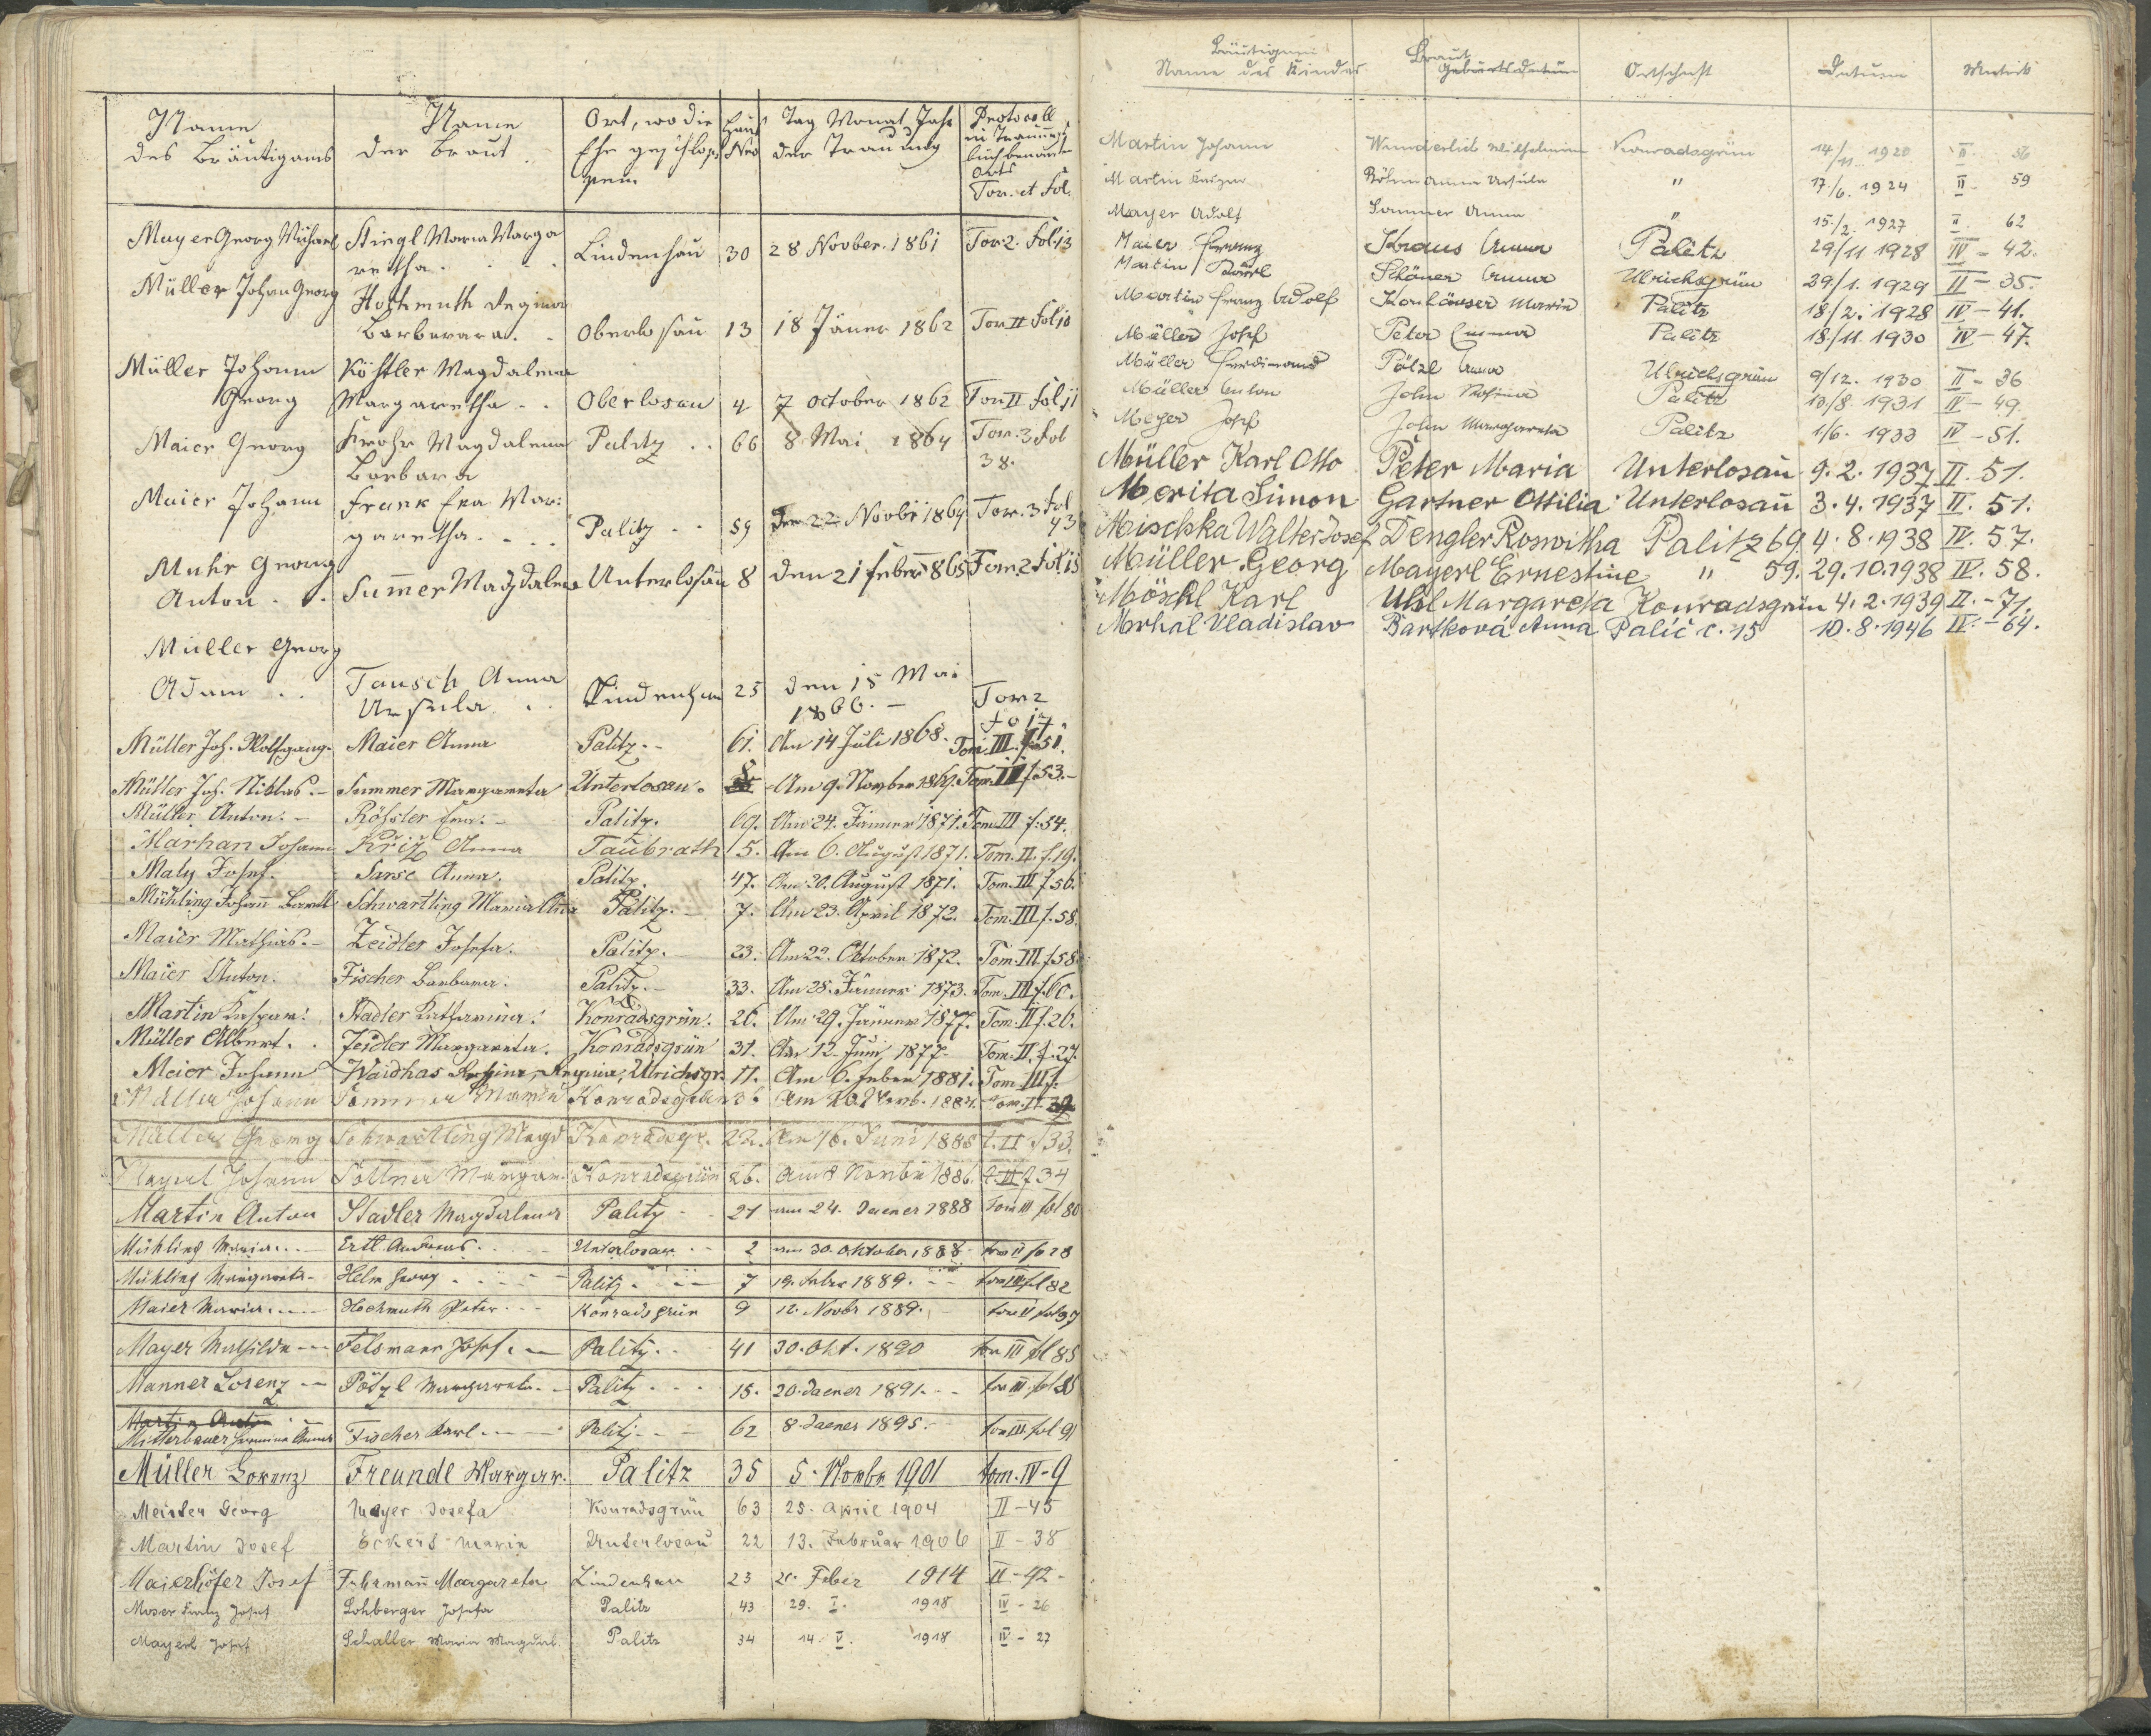 Name des Bräutigams | Name der Braut | Ort, wo die Ehe geschlossen | Haus Nro | Tag Monat Jahr der Trauung | Protocoll
Tom. et Fol.
Mayer Georg Michael | Stingl Maria Margaretha | Lindenhau | 30 | 28 Novber. 1861 | Tom 2. Fol. 13
Müller Johan Georg | Hochmuth Regina Barbara | Oberlosau | 13 | 18 Jäner 1862 | Tom II Fol 10
Müller Johann Georg | Köstler Magdalena Margaretha | Oberlosau | 4 | 7 October 1862 | Tom II Fol 11
Maier Georg | Magdalena Barbara | Palitz | 66 | 8 Mai 1864 | Tom. 3 Fol 38.
Maier Johann | Frank Eva Margaretha | Palitz | 59 | den 22 Novbr 1864 | Tom. 3 Fol 43
Muhr Georg Anton | Summer Magdalena | Unterlosau | 8 | den 21 Feber 1865 | Tom. 2 Fol. 15
Müller Georg Adam | Tausch Anna Ursula | Lindenhau | 25 | den 15 Mai 1866. | Tom 2 fo 17
Müller Joh. Wolfgang. | Maier Anna | Palitz. | 61. | Am 14 Juli 1868. | Tom. III. f. 51.
Müller Joh. Niklas. | Summer Margareta | Unterlosau. | 8 | Am 9. Novber 1869. | Tom. III f. 53.
Müller Anton. | Rößler Eva. | Palitz. | 69. | Am 24. Jänner 1871. | Tom. III f. 54.
Marhan Johann | Křiž Anna | Taubrath | 5. | Am 6. August 1871. | Tom. II. f. 19.
Maly Josef. | Sarse Anna. | Palitz. | 47. | Am 20. August 1871. | Tom. III f. 56.
Mühling Johann Barth | Schwartling Maria Anna | Palitz. | 7. | Am 23. April 1872. | Tom. III f. 58.
Maier Mathias. | Zeidler Josefa. | Palitz. | 23. | Am 22. Oktober 1872. | Tom. III. f. 58.
Maier Anton. | Fischer Barbara. | Palitz. | 33. | Am 28. Jänner 1873. | Tom. III f. 60.
Martin Kaspar. | Stadler Katharina. | Konradsgrün. | 26. | Am 29. Jänner 1877. | Tom. II f. 26.
Müller Albert. | Zeidler Margareta. | Konradsgrün | 31. | Am 12. Juni 1877. | Tom. II. f. 27.
Meier Johann | Waidhas Rosina, Regina, | Ulrichsgr. | 11. | Am 6. Feber 1881. | Tom III f.
Müller Johann | Sommer Maria | Konradsgrün | 1884.
Müller Georg | Schwartling Magd | Konradsgr. | 22. | Am 16. Juni 1885 | t. II f 33.
Mayerl Johann | Söllner Margar. | Konradsgrün | 26. | Am 8 Novbr 1886. | t. II f 34
Martin Anton | Stadler Magdalena | Palitz | 21 | am 24. Jaener 1888 | Tom III fol 80
Mühling Maria | Ertl Andreas | Unterlosau | 2 | am 30. Oktober 1888 | tom II fo 28
Mühling Margareta | Helm Georg | Palitz | 7 | 19. Febr 1889. | tom III fol 82
Maier Maria | Hochmuth Peter | Konradsgrün | 9 | 12. Novbr 1889. | tom II fol 37
Mayer Mathilde | Felsmann Josef | Palitz | 41 | 30. Okt. 1890 | tom III fol 85
Manner Lorenz | Pötzl Margareta | Palitz | 15. | 20. Jaener 1891. | tom III fol 86
Martin Anton
Mitterbauer Hermine Anna | Fischer Karl | Palitz | 62 | 8. Jaener 1895. | tom III fol 91
Müller Lorenz | Freundl Margar. | Palitz | 35 | 5. Novbr 1901 | tom. IV - 9
Meister Georg | Mayer Josefa | Konradsgrün | 63 | 25. April 1904 | II - 45
Martin Josef | Eckert Maria | Unterlosau | 22 | 13. Februar 1906 | II - 38
Maierhöfer Josef | Fuhrmann Margareta | Lindenhau | 23 | 21. Feber 1914 | II - 42 -
Moser Franz Josef | Lohberger Josefa | Palitz | 43 | 29. I. 1918 | IV - 26
Mayerl Josef | Schaller Maria Magdal. | Palitz | 34 | 14. V. 1918 | IV - 27
Bräutigam | Braut
Name des Kindes | Geburtsdatum | Ortschaft | Datum | Matrik
Martin Johann | Wunderlich Wilhelmine | Konradsgrün | 14/11 1920 | II. 56
Martin | Böhm Anna Ursula | " | 17./6. 1924 | II 59
Mayer Adolf | Sommer Anna | " | 15./2. 1927 | II. 62
Maier Franz | Kraus Anna | Palitz | 29/11 1928 | IV - 42.
Martin Karl | Schöner Anna | Ulrichsgrün | 29./1. 1929 | II - 35.
Martin Franz Adolf | Konhäuser Maria | Palitz | 18/2. 1928 | IV - 41.
Müller Josef | Peter Emma | Palitz | 18./11. 1930 | IV - 47.
Müller Ferdinand | Pötzl Anna | Ulrichsgrün | 9/12. 1930 | II - 36
Müller Anton | John Rosina | Palitz | 10/8. 1931 | IV - 49.
Meyer Josef | John Margareta | Palitz | 1/6. 1933 | IV - 51.
Müller Karl Otto | Peter Maria | Unterlosau | 9. 2. 1937 | II. 51.
Morita Simon | Gartner Ottilia | Unterlosau | 3. 4. 1937 | II. 51.
Mischka Walter Josef | Dengler Roswitha | Palitz 69 | 4. 8. 1938 | IV. 57.
Müller Georg | Mayerl Ernestine | " 59. | 29. 10. 1938 | IV. 58.
Möschl Karl | Uhl Margareta | Konradsgrün | 4. 2. 1939 | II. - 71.
Mrhal Vladislav | Bartková Anna | Palič č. 15 | 10. 8. 1946 | IV. - 64.